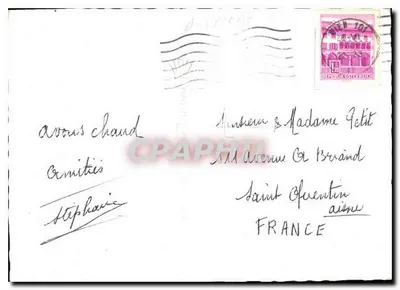 avons chaud
Amitiés
Stéphanie
Monsieur & Madame Petit
111 Avenue A Briand
Saint Quentin
aisne
FRANCE
WIEN 101
CPARAMA